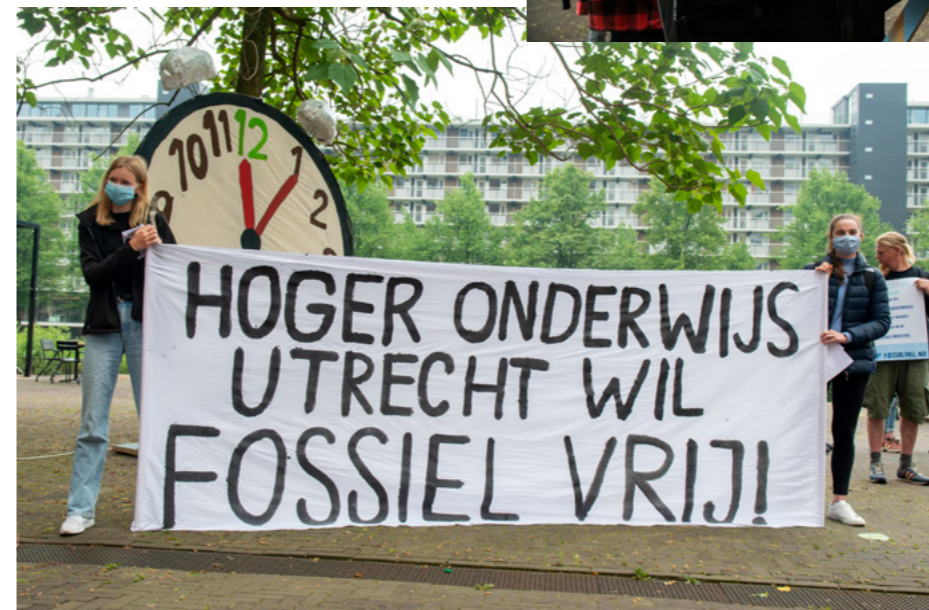 10 11 12 1
2
HOGER ONDERWIJS
UTRECHT WIL
FOSSIEL VRIJ!